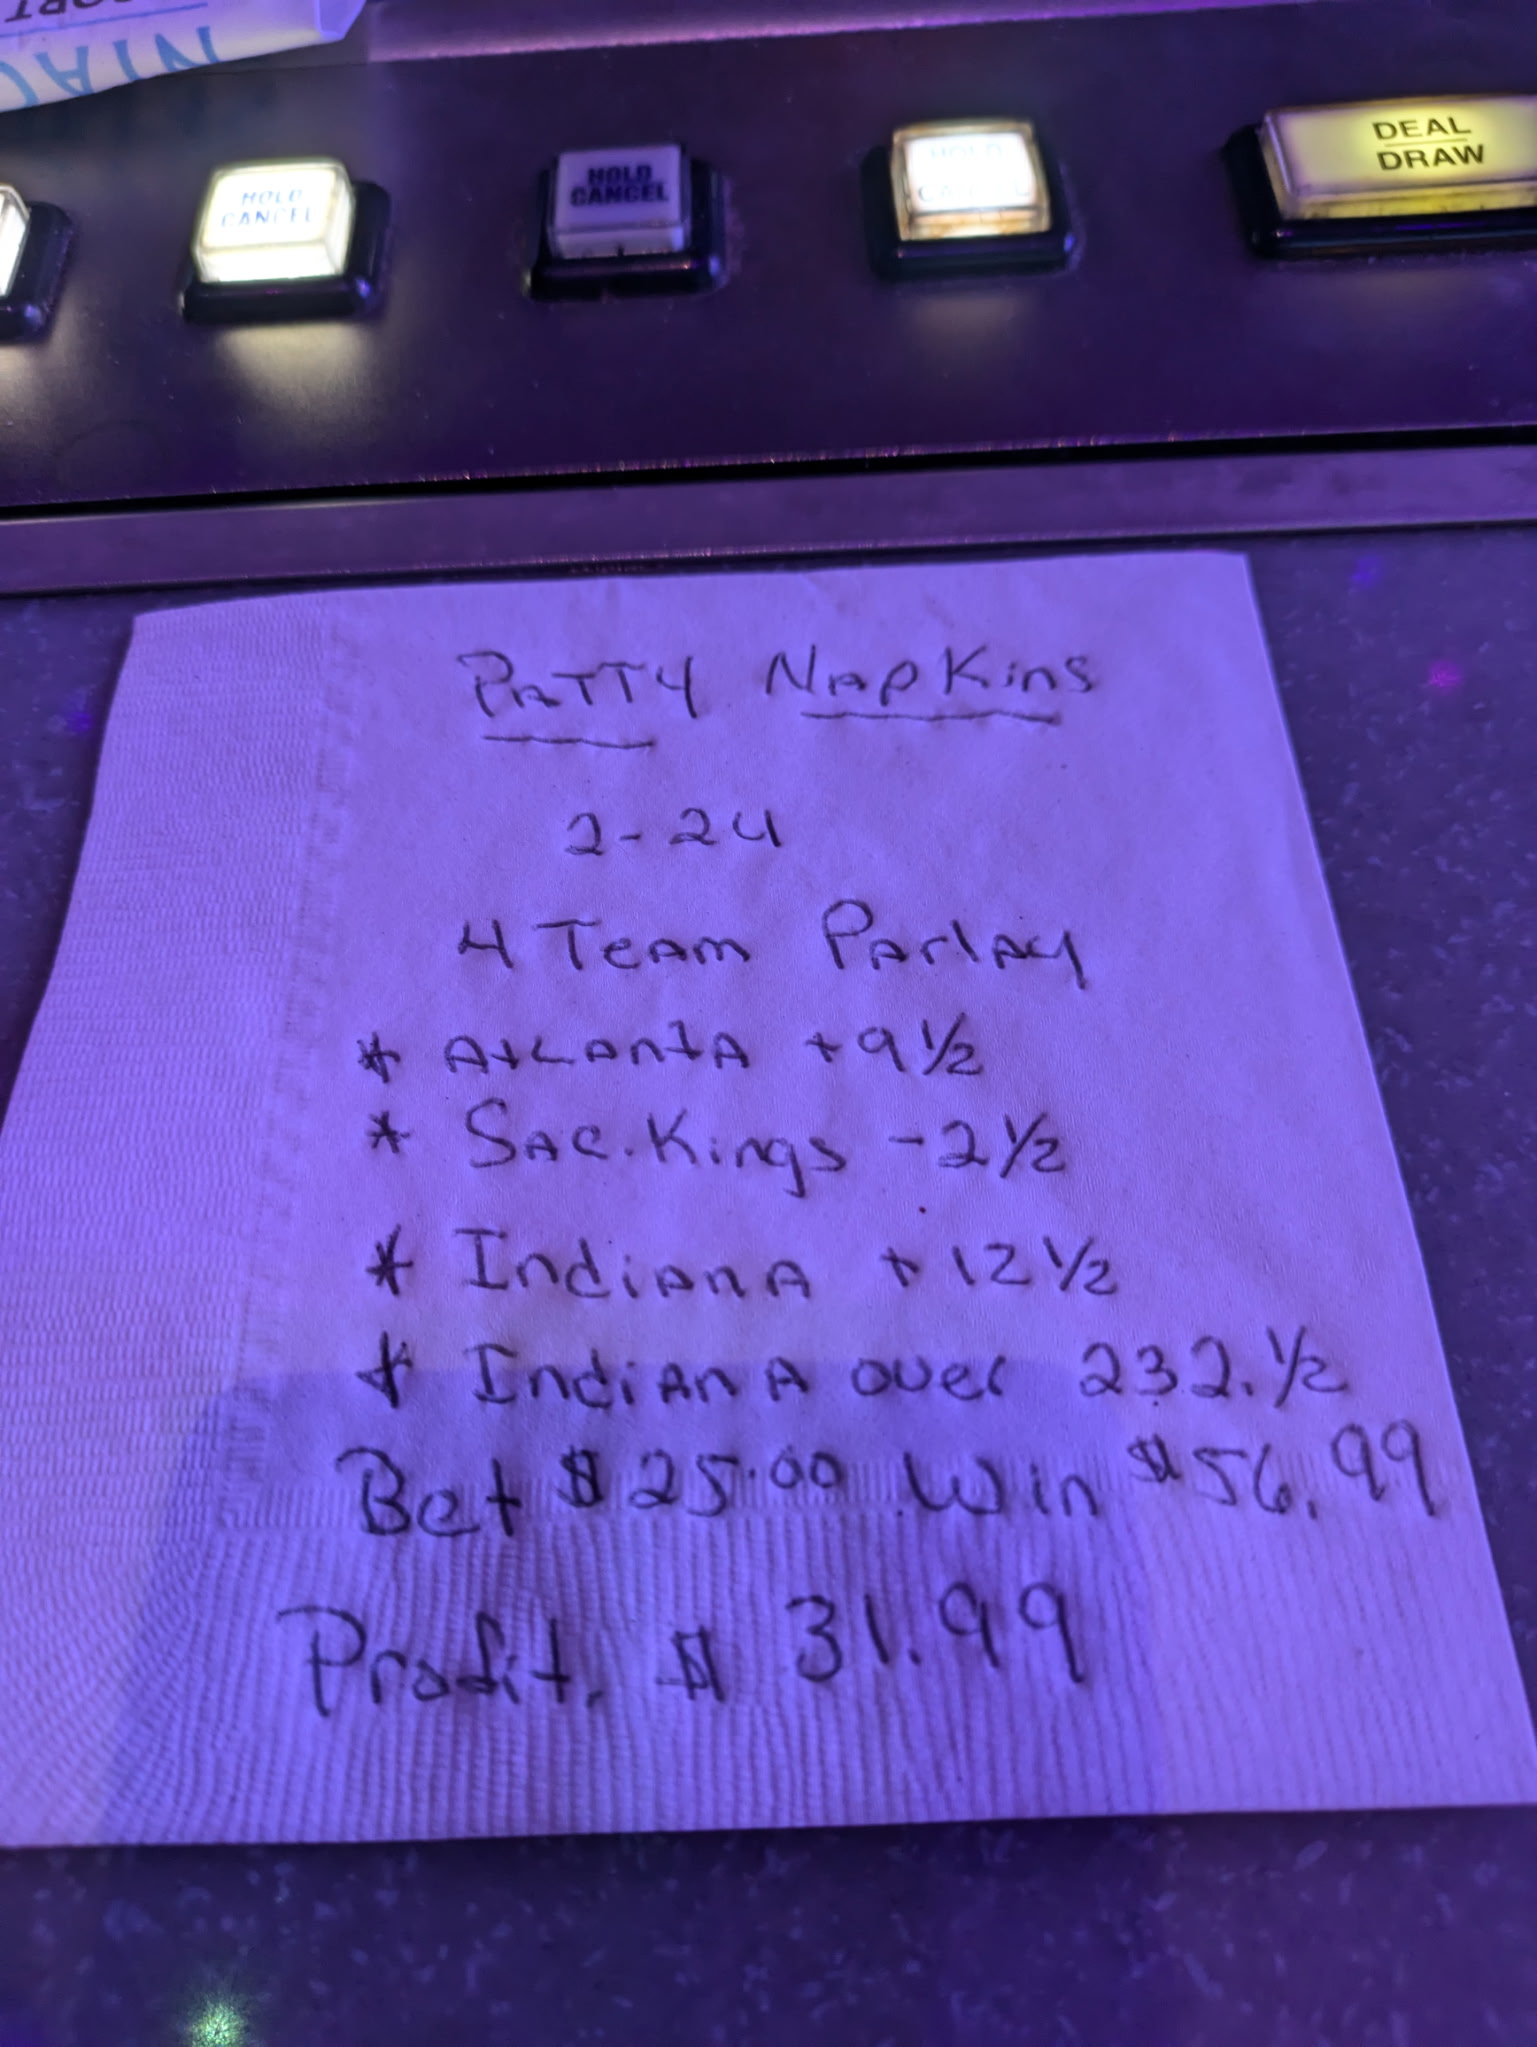 HOLD
CANCEL
HOLD
CANCEL
HOLD
CANCEL
DEAL
DRAW
Patty Napkins
2-24
4 Team Parlay
* Atlanta +9 1/2
* Sac. Kings -2 1/2
* Indiana +12 1/2
* Indiana over 232.1/2
Bet $25.00 Win $56.99
Profit. $ 31.99